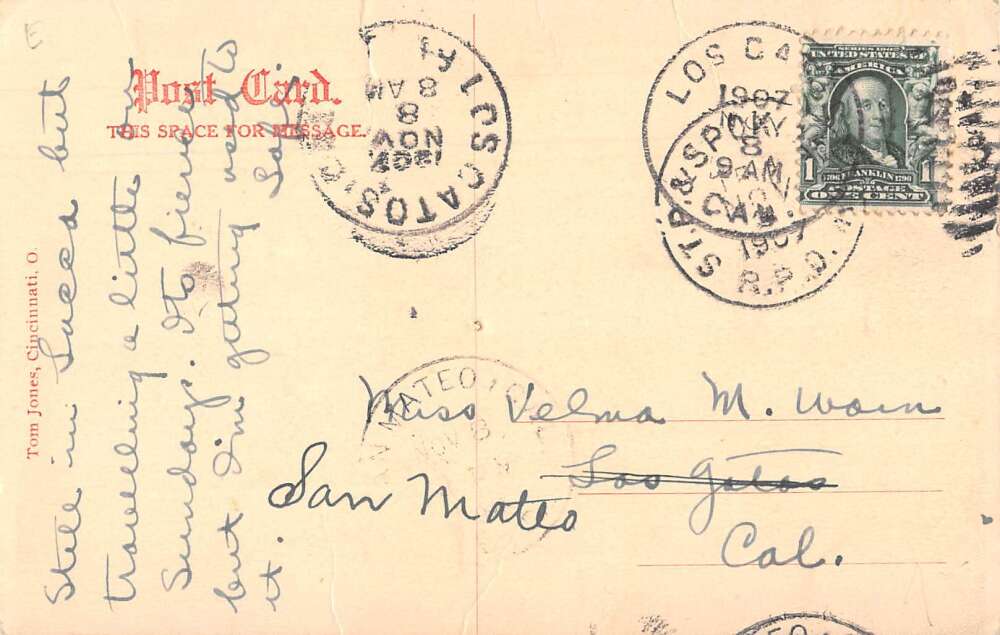 E
Post Card.
THIS SPACE FOR MESSAGE.
Still in Sacca but
travelling a little on
Sundays. It's fierce
but I'm getting used to
it.
Tom Jones, Cincinnati. O.
LOS GATOS
8 AM
NOV
8
1907
LOS GA
1907
NOV
8
9 AM
CAL.
ST. P. & SP
1907
R.P.O.
SERIES 1902
UNITED STATES OF
AMERICA
1 1
1706 FRANKLIN 1790
POSTAGE
ONE CENT
SAN MATEO
NOV 8
Miss Velma M.
Los Gatos
San Mateo
Cal.